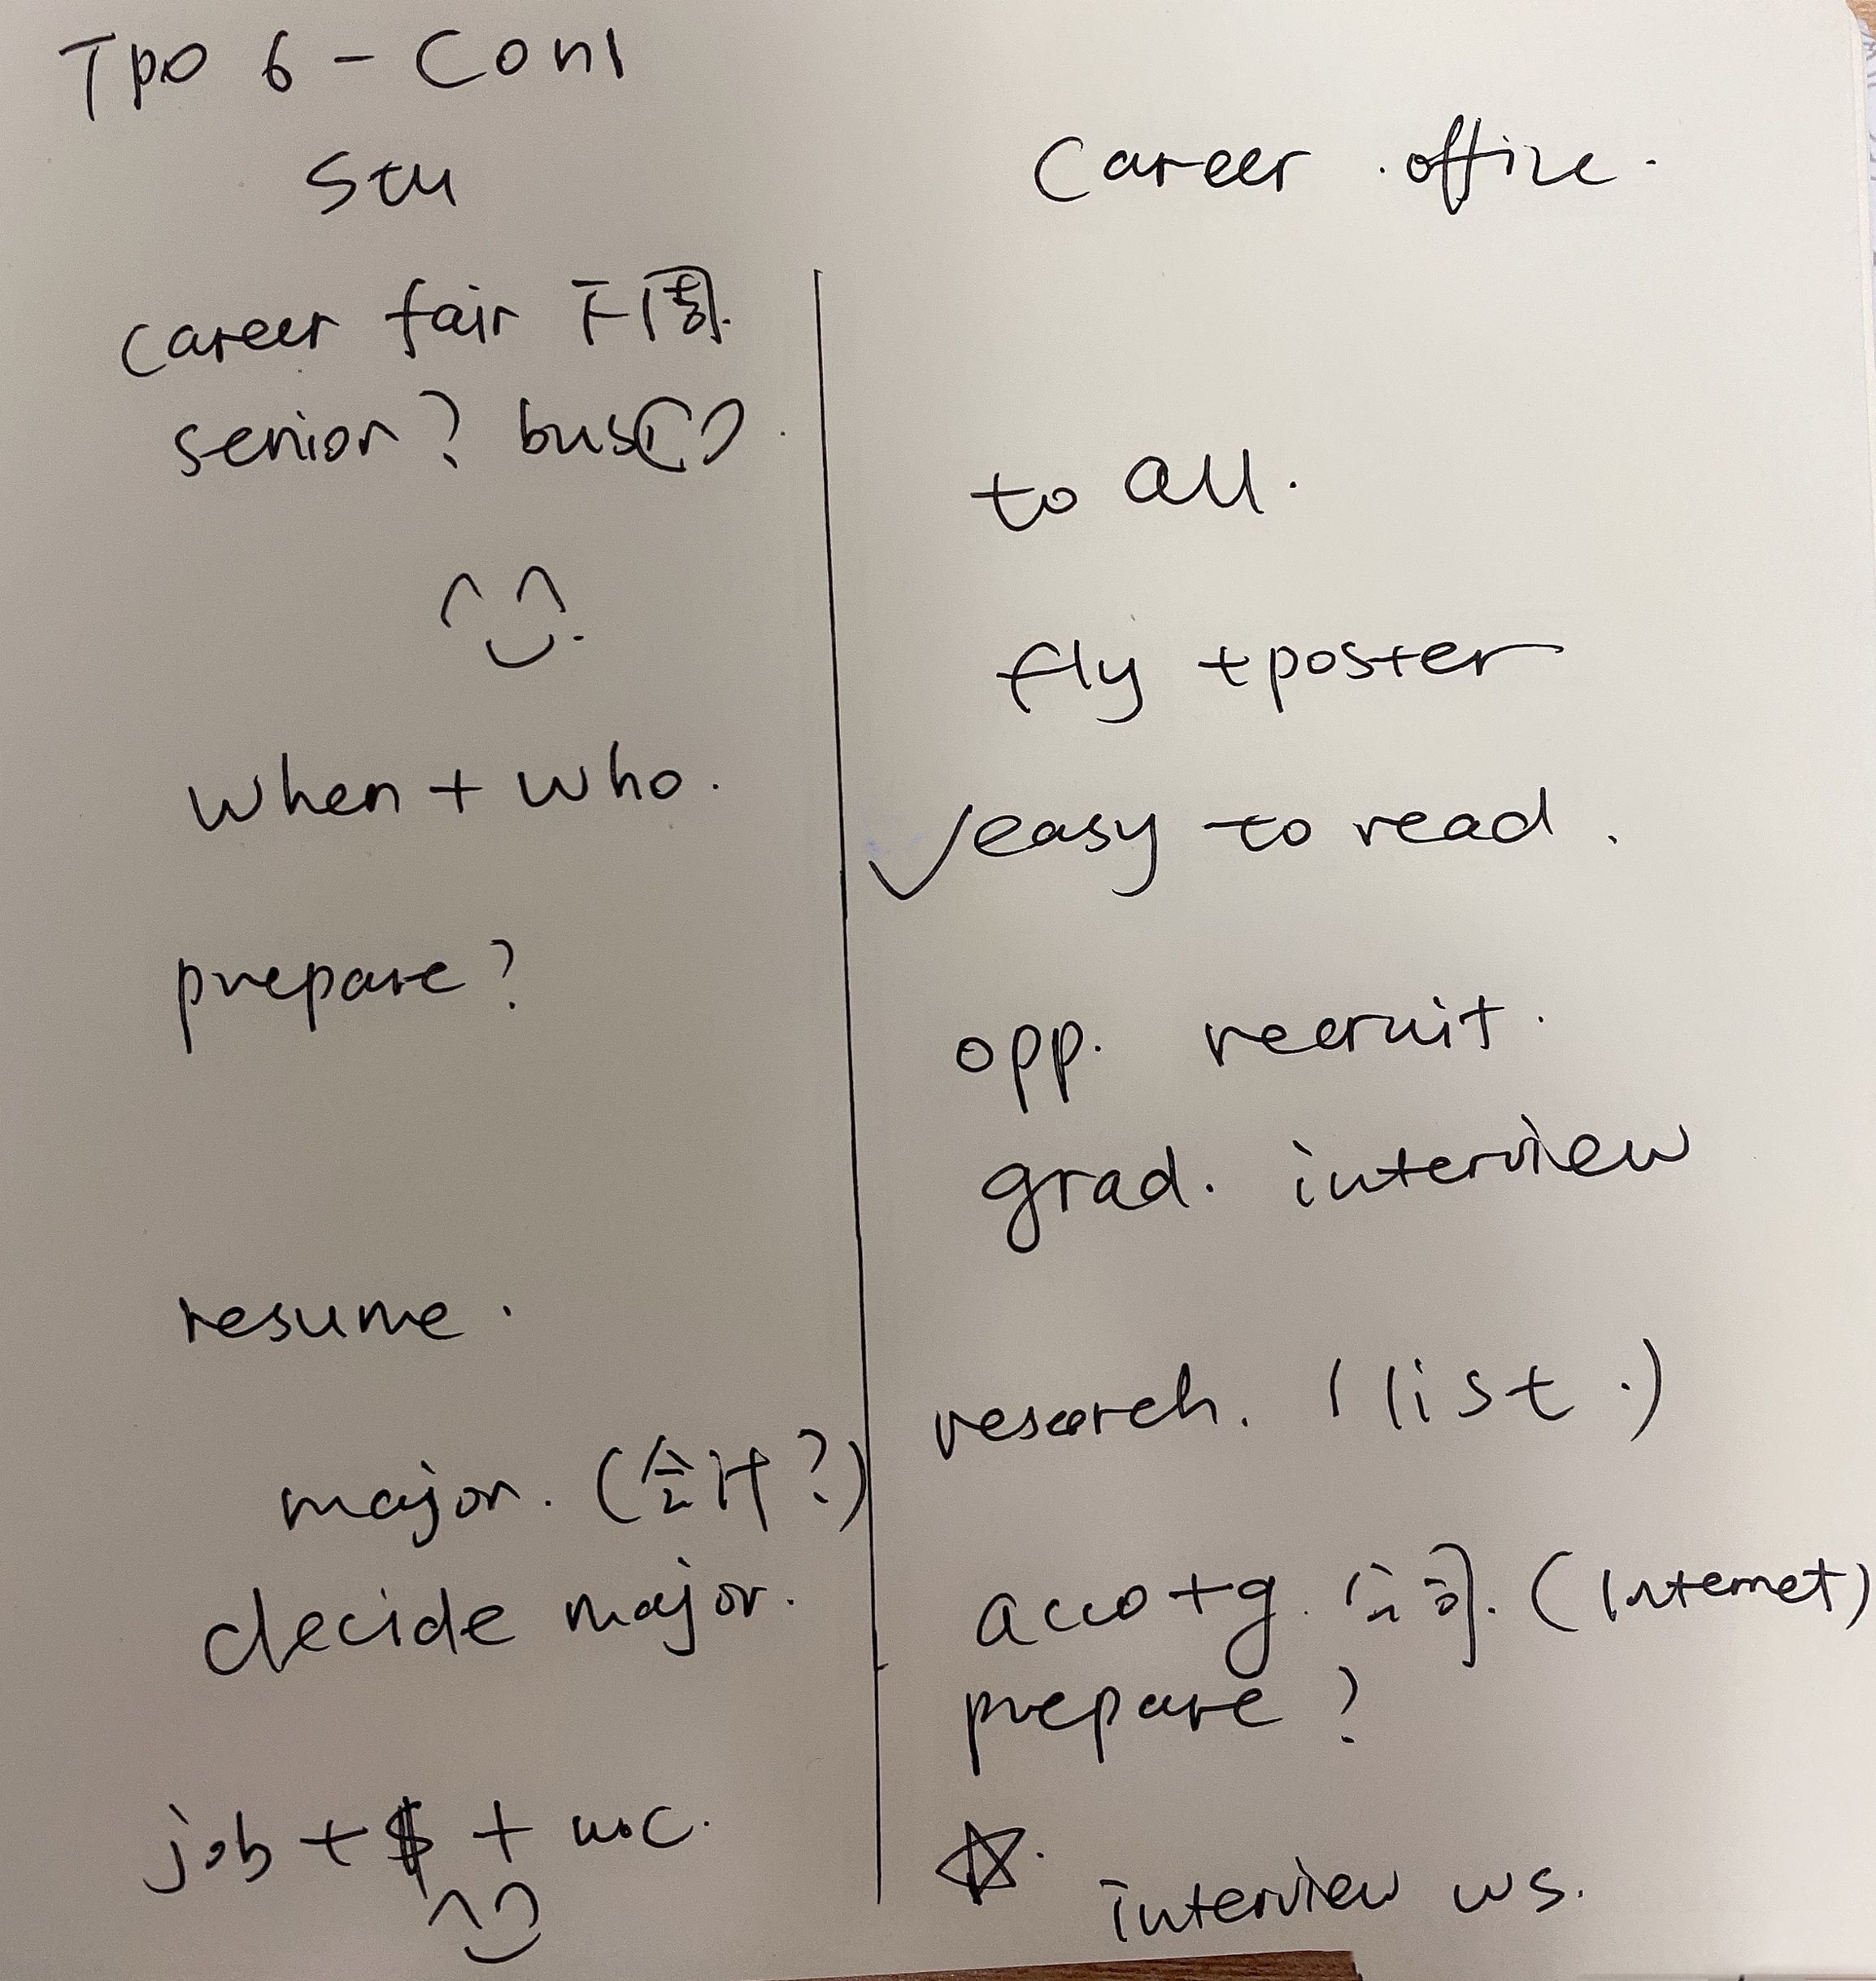 Tpo 6 - Con1
Stu
career fair 下周.
senior? bus
when + who.
prepare?
resume.
major. (会计?)
decide major.
job + $ +
Career office.
to all.
fly + poster
✓easy to read.
opp. recruit.
grad. interview
research. (list.)
acco + g. 公司. (Internet)
prepare?
☆. interview ws.